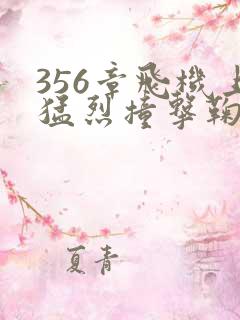 356章飛機上
猛烈撞擊鞠
夏青